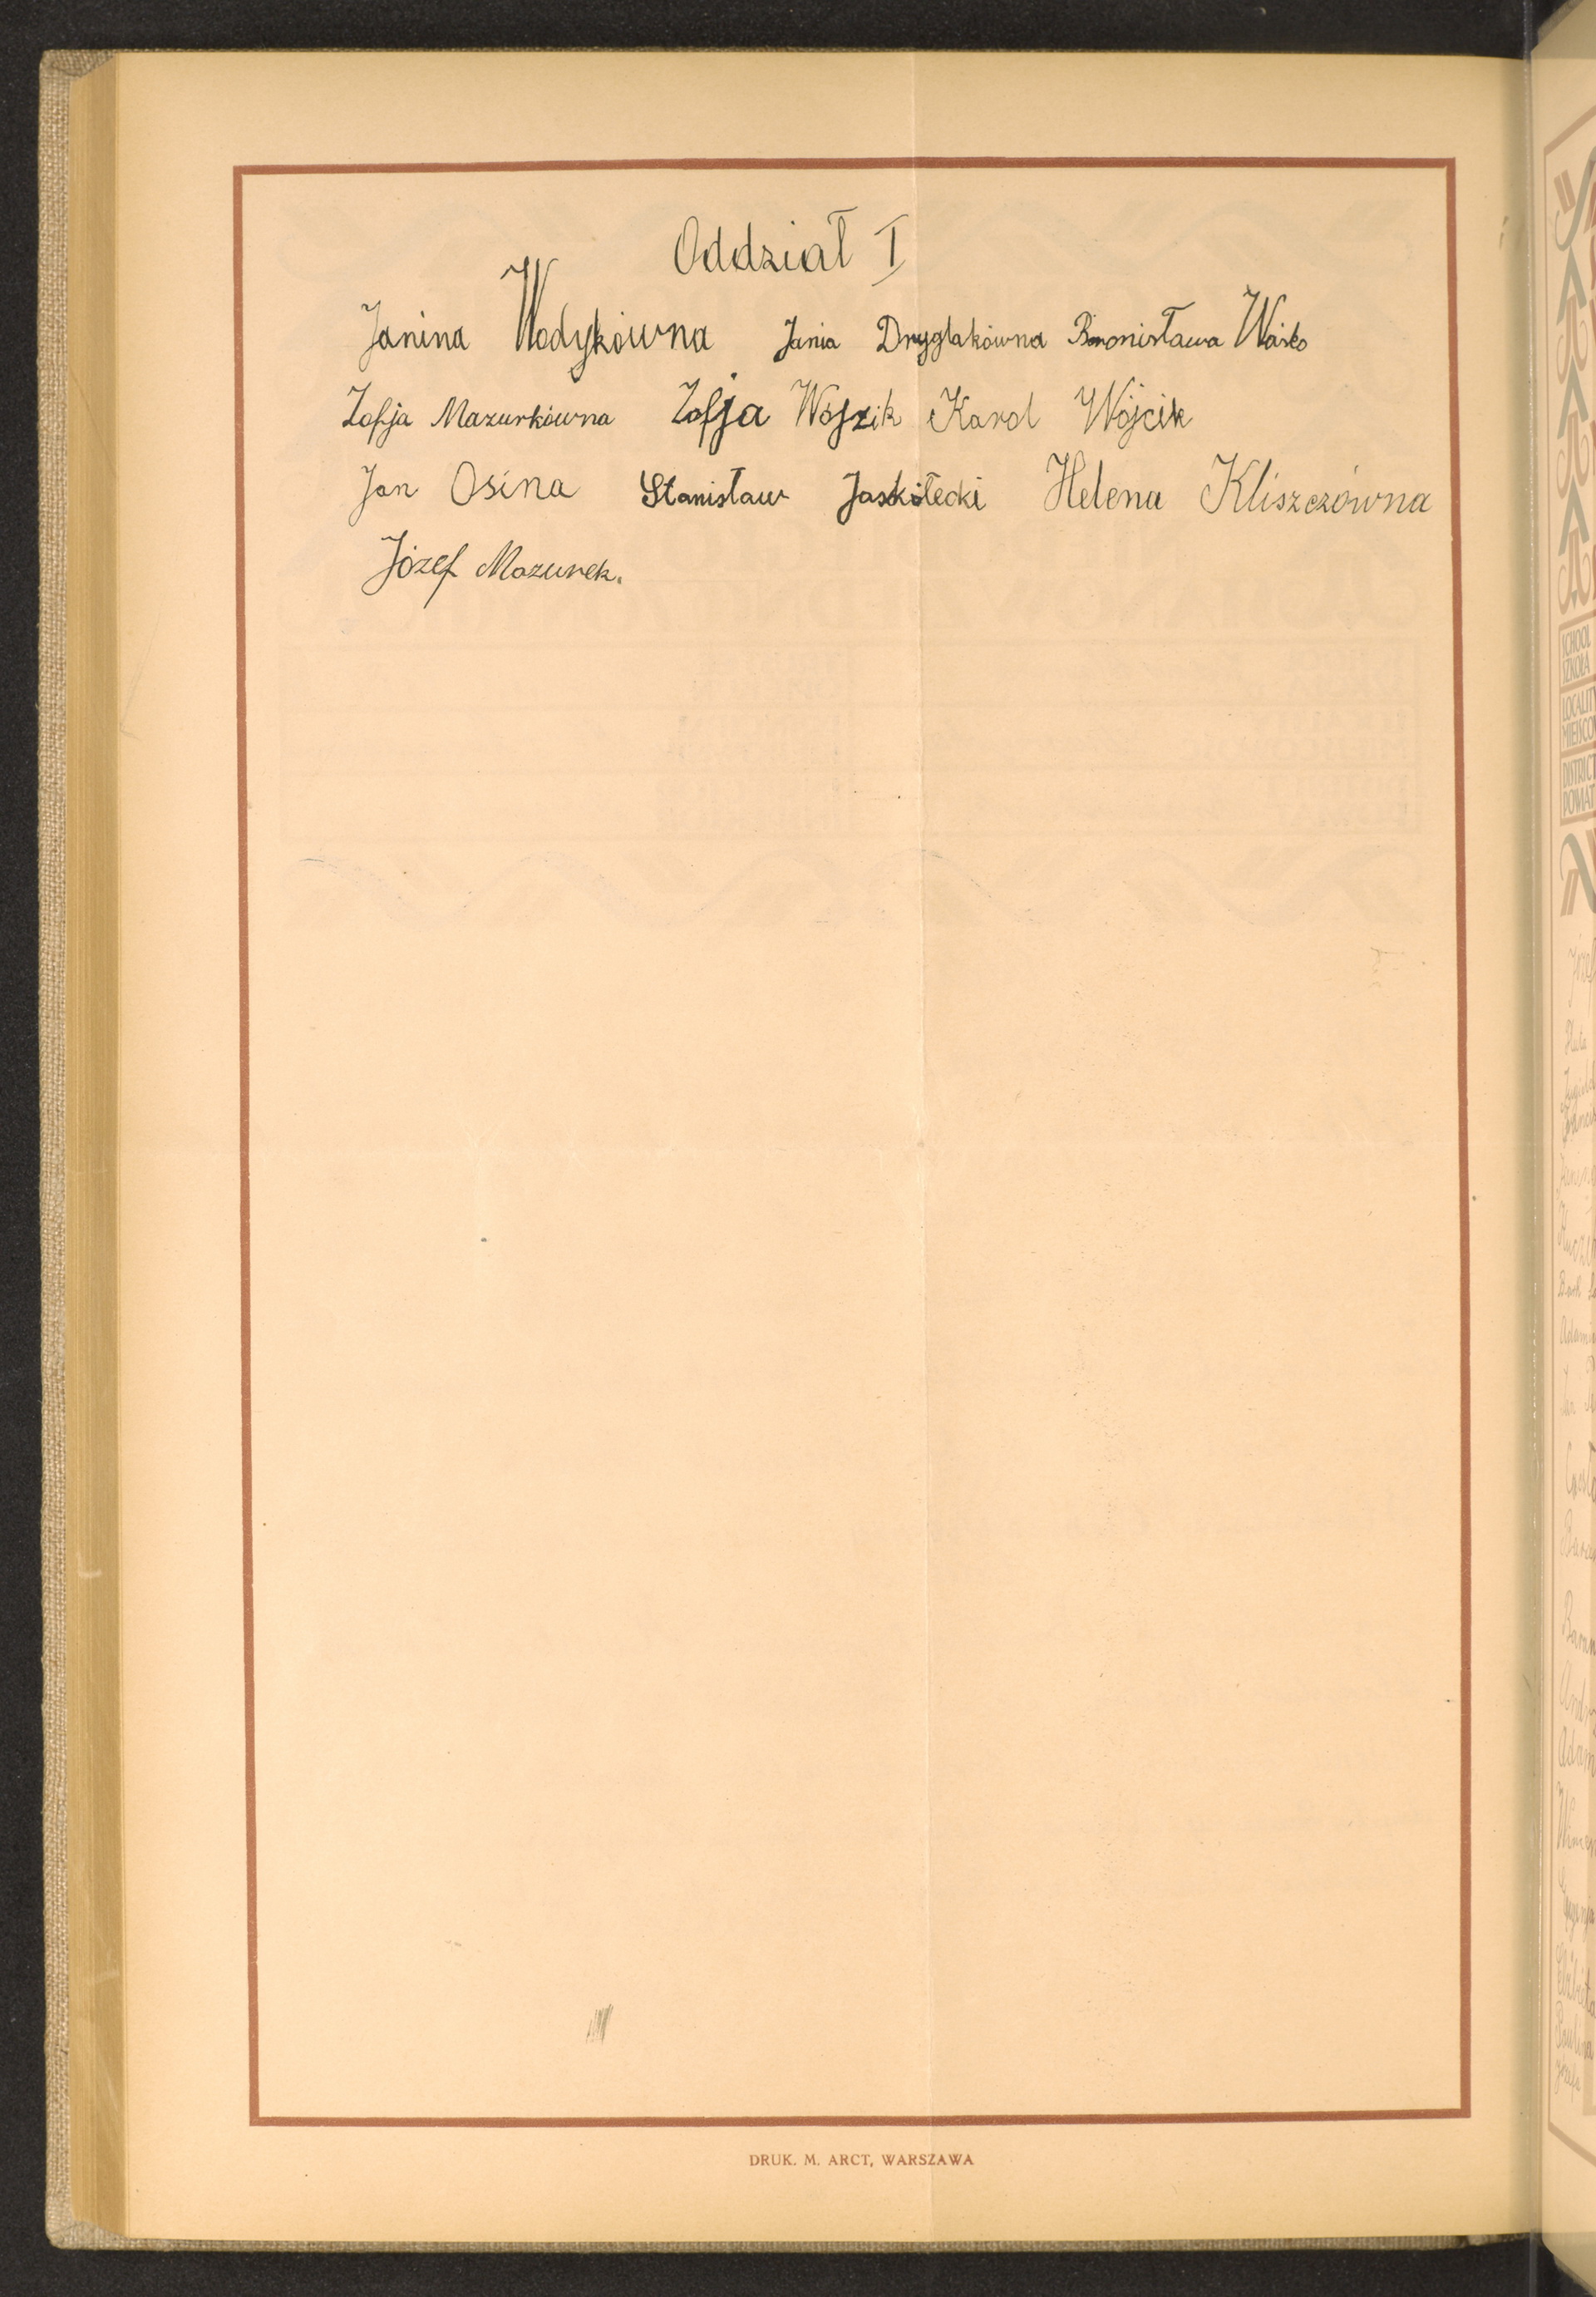 Oddział I
Janina Wodykówna Jania Dryglakówna Bronisława Waśko
Zofja Mazurkówna Zofja Wójzik Karol Wójcik
Jan Osina Stanisław Jaskółecki Helena Kliszczówna
Józef Mazurek.
DRUK. M. ARCT, WARSZAWA